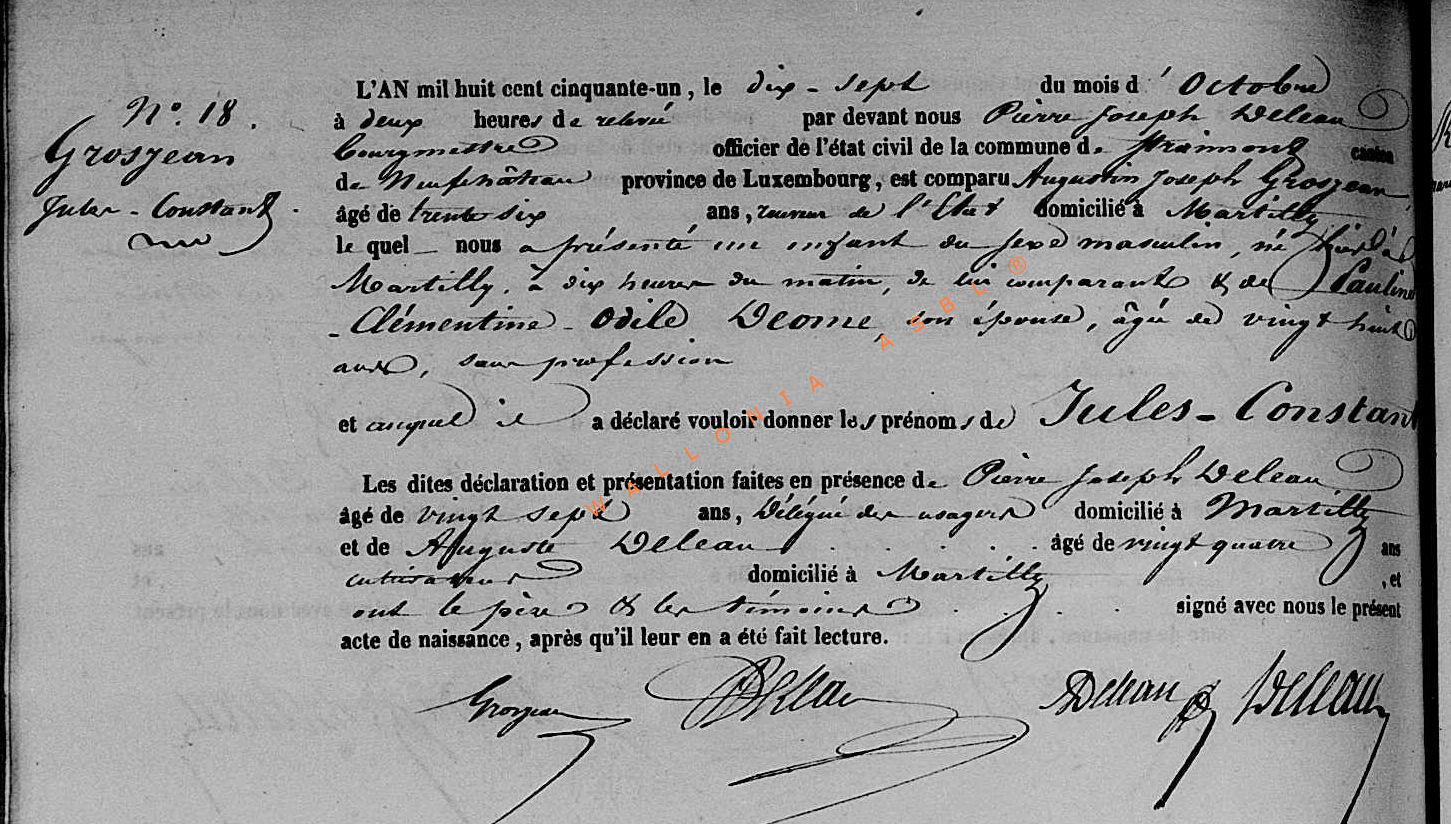 L'AN mil huit cent cinquante-un, le dix-sept du mois d'Octobre
N.° 18.
à deux heures de relevée par devant nous Pierre Joseph Deleau
Grosjean
bourgmestre officier de l'état civil de la commune de Straimont canton
de Neufchâteau province de Luxembourg, est comparu Augustin Joseph Grosjean,
Jules-Constant.
âgé de trente six ans, receveur de l'Etat domicilié à Martilly
le quel nous a présenté un enfant du sexe masculin, né hier à
Martilly, à dix heures du matin, de lui comparant & de Pauline
-Clémentine-Odile Deome, son épouse, âgée de vingt huit
ans, sans profession
et auquel il a déclaré vouloir donner les prénoms de Jules-Constant
Les dites déclaration et présentation faites en présence de Pierre Joseph Deleau
âgé de vingt sept ans, Délégué des usagers domicilié à Martilly
et de Auguste Deleau . . . . . âgé de vingt quatre ans
cultivateurs domicilié à Martilly, et
ont le père & les témoins . . . . signé avec nous le présent
acte de naissance, après qu'il leur en a été fait lecture.
Grosjean Deleau ADeleau Deleau
WALLONIA ASBL ®